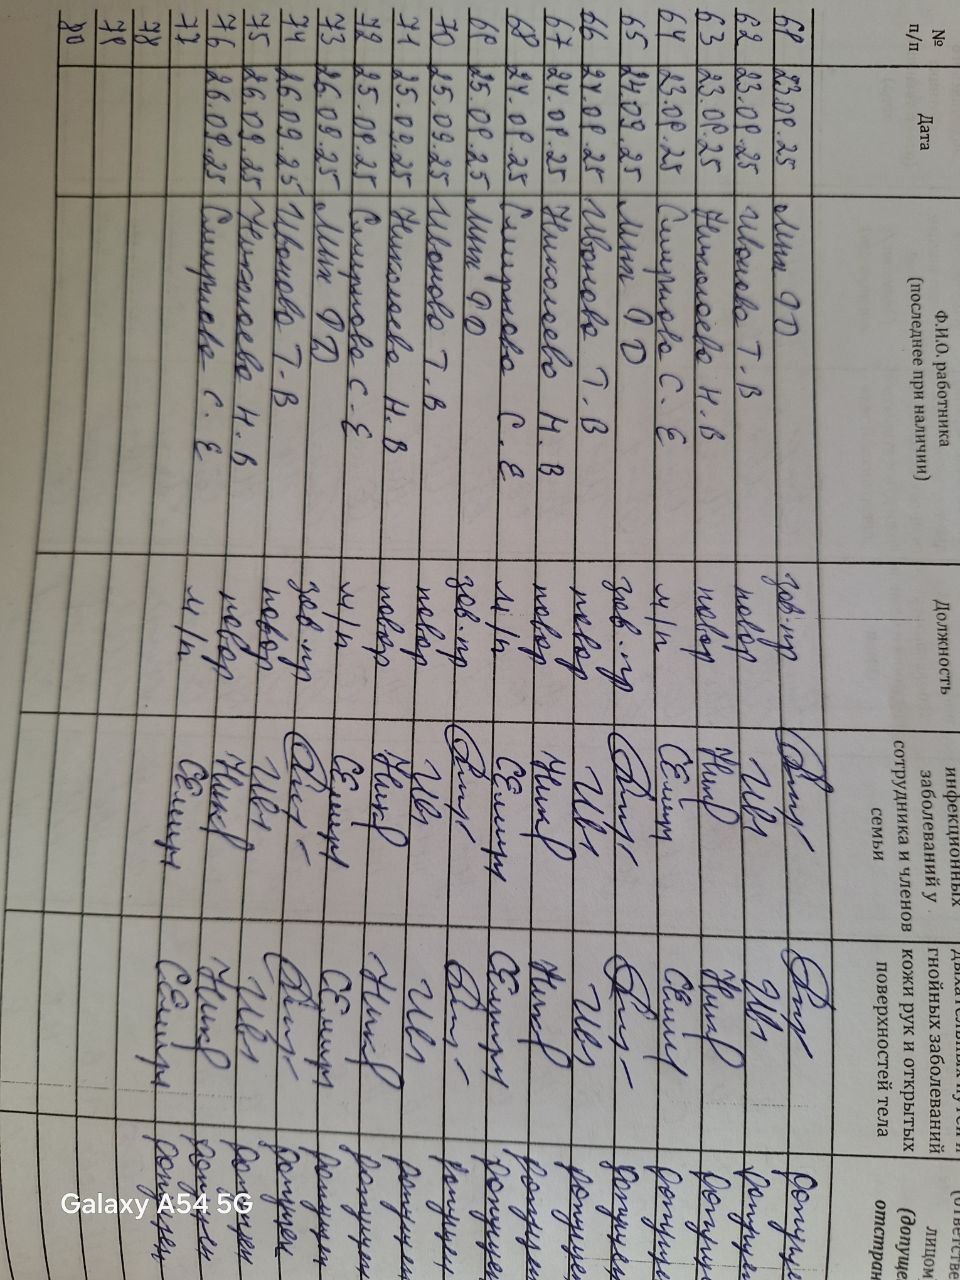 № п/п | Дата | Ф.И.О. работника (последнее при наличии) | Должность | инфекционных заболеваний у сотрудника и членов семьи | гнойных заболеваний кожи рук и открытых поверхностей тела | лицом (допуще отстран
61 23.09.25 Лип ФД зав.пр допуще
62 23.09.25 Иванова Т.В повар Ив допущен
63 23.09.25 Николаева Н.В повар Ник допуще
64 23.09.25 Смирнова С.Е м/п допуще
65 24.09.25 Лип ФД зав.пр допущен
66 24.09.25 Иванова Т.В повар Ив допущен
67 24.09.25 Николаева Н.В повар Ник допущен
68 24.09.25 Смирнова С.Е м/п допущен
69 25.09.25 Лип ФД зав.пр допущен
70 25.09.25 Иванова Т.В повар Ив допущен
71 25.09.25 Николаева Н.В повар Ник допущен
72 25.09.25 Смирнова С.Е м/п допущен
73 26.09.25 Лип ФД зав.пр допущен
74 26.09.25 Иванова Т.В повар Ив допущен
75 26.09.25 Николаева Н.В повар Ник допущен
76 26.09.25 Смирнова С.Е м/п допущен
77
78
79
80
Galaxy A54 5G